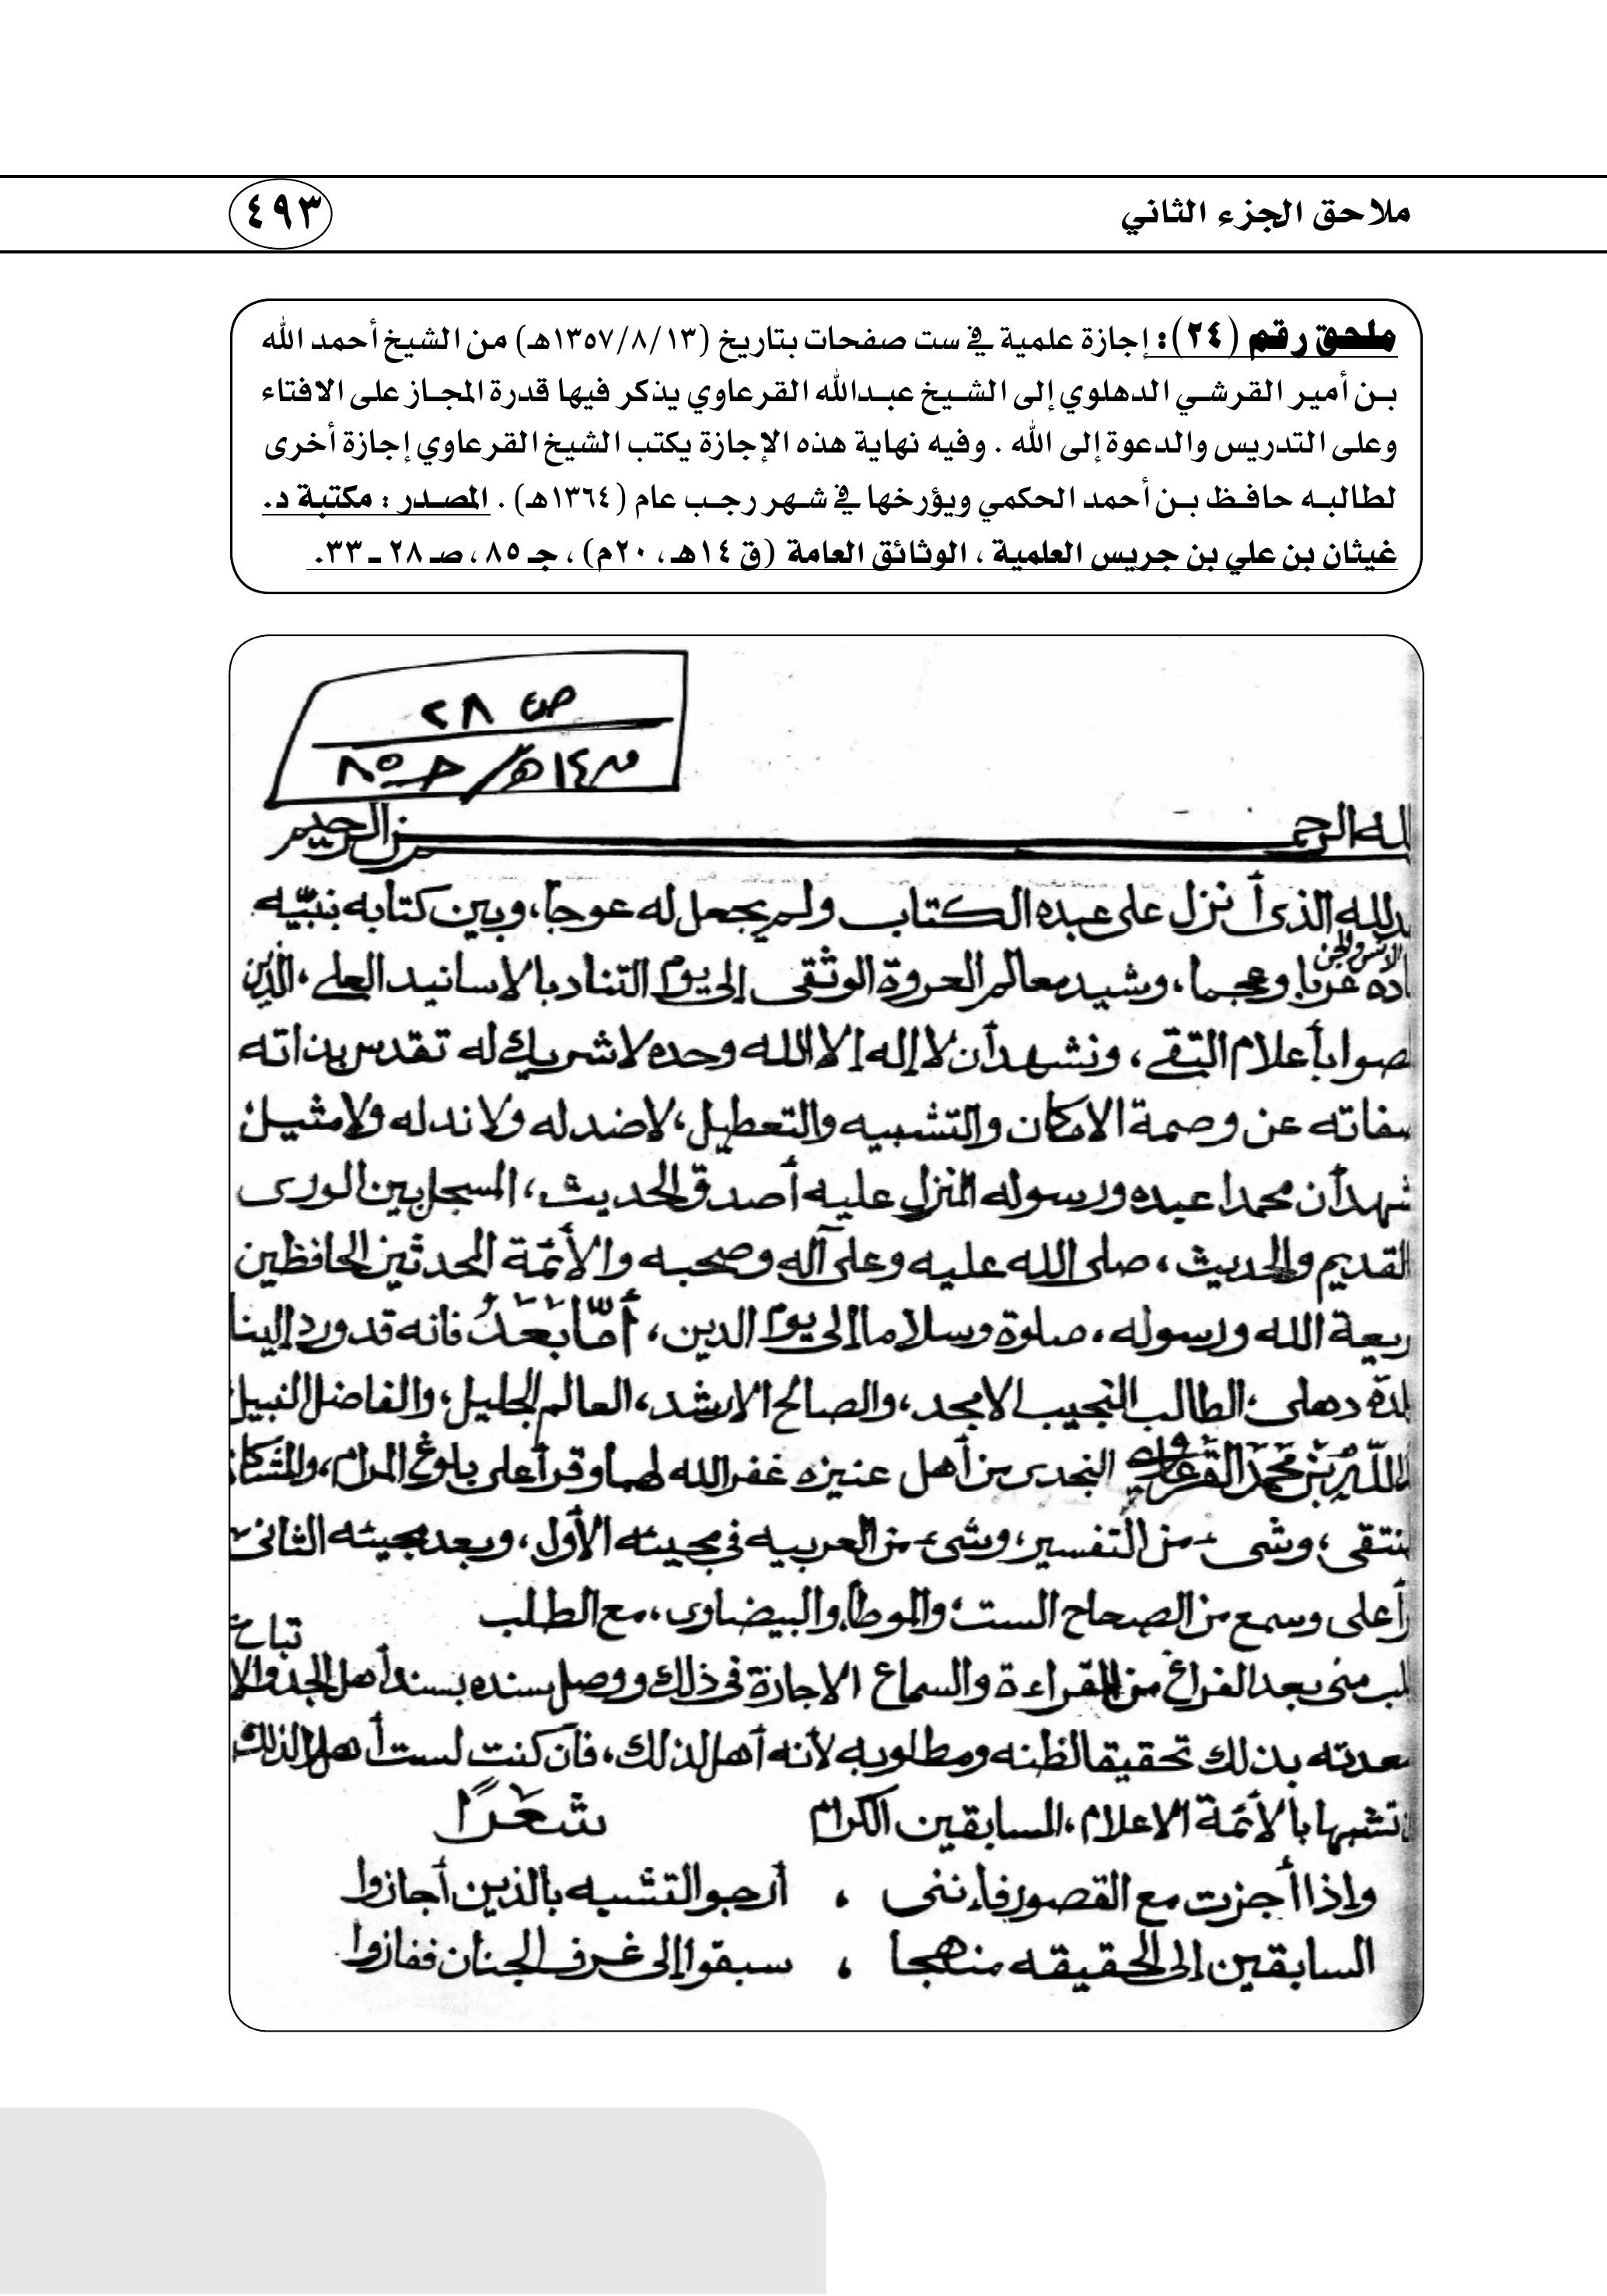 ملاحق الجزء الثاني
٤٩٣
ملحق رقم (٢٤): إجازة علمية في ست صفحات بتاريخ (١٣٥٧/٨/١٣هـ) من الشيخ أحمد الله
بن أمير القرشي الدهلوي إلى الشيخ عبدالله القرعاوي يذكر فيها قدرة المجاز على الافتاء
وعلى التدريس والدعوة إلى الله . وفيه نهاية هذه الإجازة يكتب الشيخ القرعاوي إجازة أخرى
لطالبه حافظ بن أحمد الحكمي ويؤرخها في شهر رجب عام (١٣٦٤هـ) . المصدر : مكتبة د.
غيثان بن علي بن جريس العلمية ، الوثائق العامة (ق ١٤هـ، ٢٠م) ، جـ ٨٥ ، صـ ٢٨ ـ ٣٣.
ص ٢٨
ق ١٤هـ / جـ ٨٥
لله الرحمن الرحيم
لله الذى أنزل على عبده الكتاب ولم يجعل له عوجا، وبين كتابه بنبيّه
الانس والجن
عربا وعجما، وشيد معالم العروة الوثقى إلى يوم التناد بالاسانيد العلى، الذين
بأعلام التقى، ونشهد أن لا إله إلا الله وحده لا شريك له تقدس بذاته
عن وصمة الامكان والتشبيه والتعطيل، لا ضد له ولا ند له ولا مثيل
أن محمدا عبده ورسوله المنزل عليه أصدق الحديث، المسجل بين الورى
القديم والحديث، صلى الله عليه وعلى آله وصحبه والأئمة المحدثين الحافظين
الله ورسوله، صلوة وسلاما إلى يوم الدين، أمّا بعد فانه قد ورد إلينا
دهلى، الطالب النجيب الامجد، والصالح الارشد، العالم الجليل، والفاضل النبيل
بن محمد القرعاوى النجدى من أهل عنيزه غفر الله لهما وقرأ على بلوغ المرام، والمشكاة
، وشىء من التفسير، وشىء من العربيه فى مجيئه الأول، وبعد مجيئه الثانى
على وسمع من الصحاح الست، والموطأ والبيضاوى، مع الطلب
منى بعد الفراغ من القراءة والسماع الاجازة فى ذلك ووصل سنده بسند أهل الجد والا
تباع
بذلك تحقيقا لظنه ومطلوبه لأنه أهل لذلك، فان كنت لست أهلا لذلك
تشبها بالأئمة الاعلام، السابقين الكرام شعرًا
وإذا أجزت مع القصور فإننى ، أرجو التشبه بالذين أجازوا
السابقين إلى الحقيقه منهجا ، سبقوا إلى غرف الجنان ففازوا